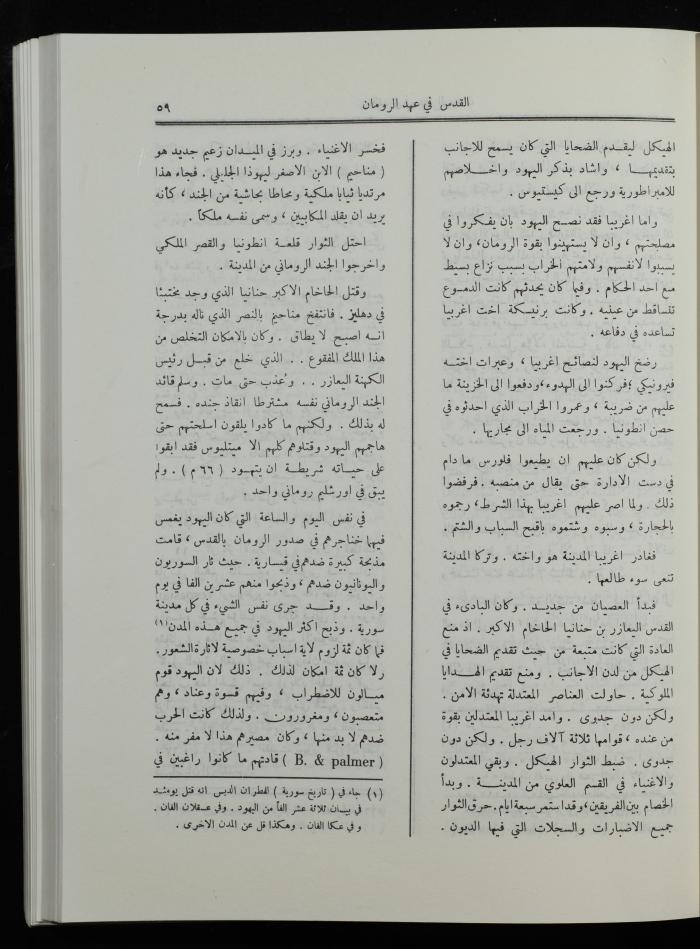 القدس في عهد الرومان
٥٩
الهيكل ليقدم الضحايا التي كان يسمح للاجانب
بتقديمها ، واشاد بذكر اليهود واخلاصهم
للامبراطورية ورجع الى كيستيوس .
واما اغريبا فقد نصح اليهود بان يفكروا في
مصلحتهم ، وان لا يستهينوا بقوة الرومان، وان لا
يسببوا لانفسهم ولامتهم الخراب بسبب نزاع بسيط
مع احد الحكام . وفيما كان يحدثهم كانت الدموع
تتساقط من عينيه . وكانت برنيسكة اخت اغريبا
تساعده في دفاعه .
رضخ اليهود لنصائح اغريبا ، وعبرات اخته
فيرونيكي ؛فركنوا الى الهدوء،ودفعوا الى الخزينة ما
عليهم من ضريبة ، وعمروا الخراب الذي احدثوه في
حصن انطونيا . ورجعت المياه الى مجاريها .
ولكن كان عليهم ان يطيعوا فلورس ما دام
في دست الادارة حتى يقال من منصبه . فرفضوا
ذلك . ولما اصر عليهم اغريبا بهذا الشرط، رجموه
بالحجارة ، وسبوه وشتموه باقبح السباب والشتم .
فغادر اغريبا المدينة هو واخته . وتركا المدينة
تنعى سوء طالعها .
فبدأ العصيان من جديد . وكان البادىء في
القدس اليعازر بن حنانيا الحاخام الاكبر . اذ منع
العادة التي كانت متبعة من حيث تقديم الضحايا في
الهيكل من لدن الاجانب . ومنع تقديم الهدايا
الملوكية . حاولت العناصر المعتدلة تهدئة الامن .
ولكن دون جدوى . وامد اغريبا المعتدلين بقوة
من عنده ، قوامها ثلاثة آلاف رجل . ولكن دون
جدوى . ضبط الثوار الهيكل . وبقي المعتدلون
والاغنياء في القسم العلوي من المدينة . وبدأ
الخصام بين الفريقين،وقد استمر سبعة ايام.حرق الثوار
جميع الاضبارات والسجلات التي فيها الديون .
فخسر الاغنياء . وبرز في الميدان زعيم جديد هو
( مناحيم ) الابن الأصغر ليهوذا الجليلي . فجاء هذا
مرتديا ثيابا ملكية ومحاطا بحاشية من الجند ، كأنه
يريد ان يقلد المكابيين ، وسمى نفسه ملكاً .
احتل الثوار قلعة انطونيا والقصر الملكي
واخرجوا الجند الروماني من المدينة .
وقتل الحاخام الاكبر حنانيا الذي وجد مختبئا
في دهليز . فانتفخ مناحيم بالنصر الذي ناله بدرجة
انه اصبح لا يطاق . وكان بالامكان التخلص من
هذا الملك المفقوع . . الذي خلع من قبل رئيس
الكهنة اليعازر . . وعُذب حتى مات . وسلم قائد
الجند الروماني نفسه مشترطا انقاذ جنده . فسمح
له بذلك . ولكنهم ما كادوا يلقون اسلحتهم حتى
هاجمهم اليهود وقتلوهم كلهم الا ميتليوس فقد ابقوا
على حياته شريطة ان يتهود ( ٦٦ م ) . ولم
يبق في اورشليم روماني واحد .
في نفس اليوم والساعة التي كان اليهود يغمس
فيها خناجرهم في صدور الرومان بالقدس ، قامت
مذبحة كبيرة ضدهم في قيسارية . حيث ثار السوريون
واليونانيون ضدهم ، وذبحوا منهم عشرين الفا في يوم
واحد . وقد جرى نفس الشيء في كل مدينة
سورية . وذبح اكثر اليهود في جميع هذه المدن (١)
فما كان ثمة لزوم لاية اسباب خصوصية لاثارة الشعور.
ولا كان ثمة امكان لذلك . ذلك لان اليهود قوم
ميالون للاضطراب ، وفيهم قسوة وعناد ، وهم
متعصبون ، ومغرورون . ولذلك كانت الحرب
ضدهم لا بد منها ، وكان مصيرهم هذا لا مفر منه .
( B. & palmer ) قادتهم ما كانوا راغبين في
(١) جاء في ( تاريخ سورية ) للمطران الدبس انه قتل يومئذ
في بيسان ثلاثة عشر الفاً من اليهود . وفي عسقلان الفان .
وفي عكا الفان . وهكذا قل عن المدن الاخرى .